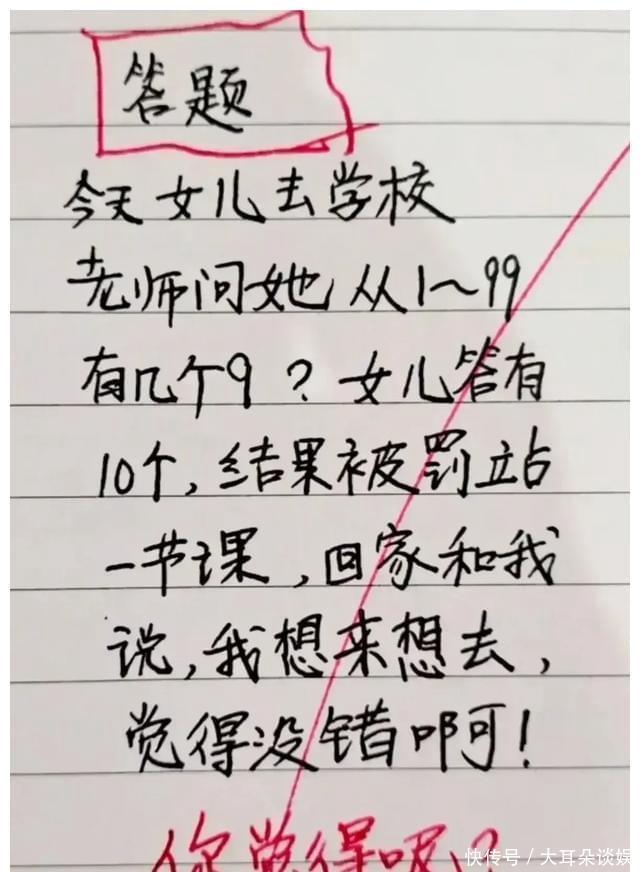 答题
今天女儿去学校
老师问她从1～99
有几个9？女儿答有
10个，结果被罚站
一节课，回家和我
说，我想来想去，
觉得没错啊！
你觉得呢？
快传号／大耳朵谈娱